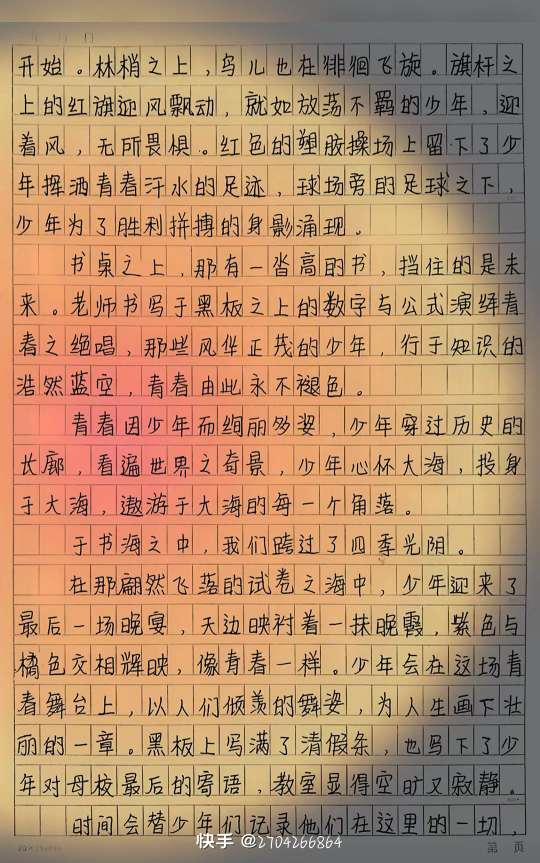 开始。林梢之上，鸟儿也在徘徊飞旋。旗杆之
上的红旗迎风飘动，就如放荡不羁的少年，迎
着风，无所畏惧。红色的塑胶操场上留下了少
年挥洒青春汗水的足迹，球场旁的足球之下，
少年为了胜利拼搏的身影涌现。
书桌之上，那有一沓高的书，挡住的是未
来。老师书写于黑板之上的数字与公式演绎青
春之绝唱，那些风华正茂的少年，行于知识的
浩然蓝空，青春由此永不褪色。
青春因少年而绚丽多姿，少年穿过历史的
长廊，看遍世界之奇景，少年心怀大海，投身
于大海，遨游于大海的每一个角落。
于书海之中，我们跨过了四季光阴。
在那翩然飞落的试卷之海中，少年迎来了
最后一场晚宴，天边映衬着一抹晚霞，紫色与
橘色交相辉映，像青春一样。少年会在这场青
春舞台上，以人们倾羡的舞姿，为人生画下壮
丽的一章。黑板上写满了清假条，也写下了少
年对母校最后的寄语，教室显得空旷又寂静。
时间会替少年们记录他们在这里的一切，
快手 @2704266864
第 页